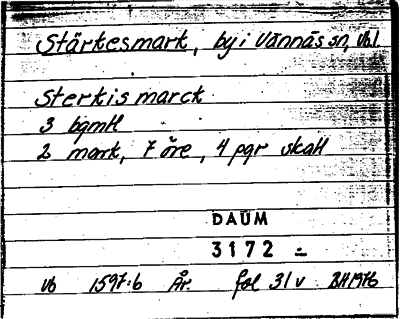 Stärkesmark, by i Vännäs sn, Vb.
Sterkismarck
3 bgmtl
2 mark, 7 öre, 4 pgr skatt
DAUM
3172
Vb 1597:6 År. fol 31v BH 1976